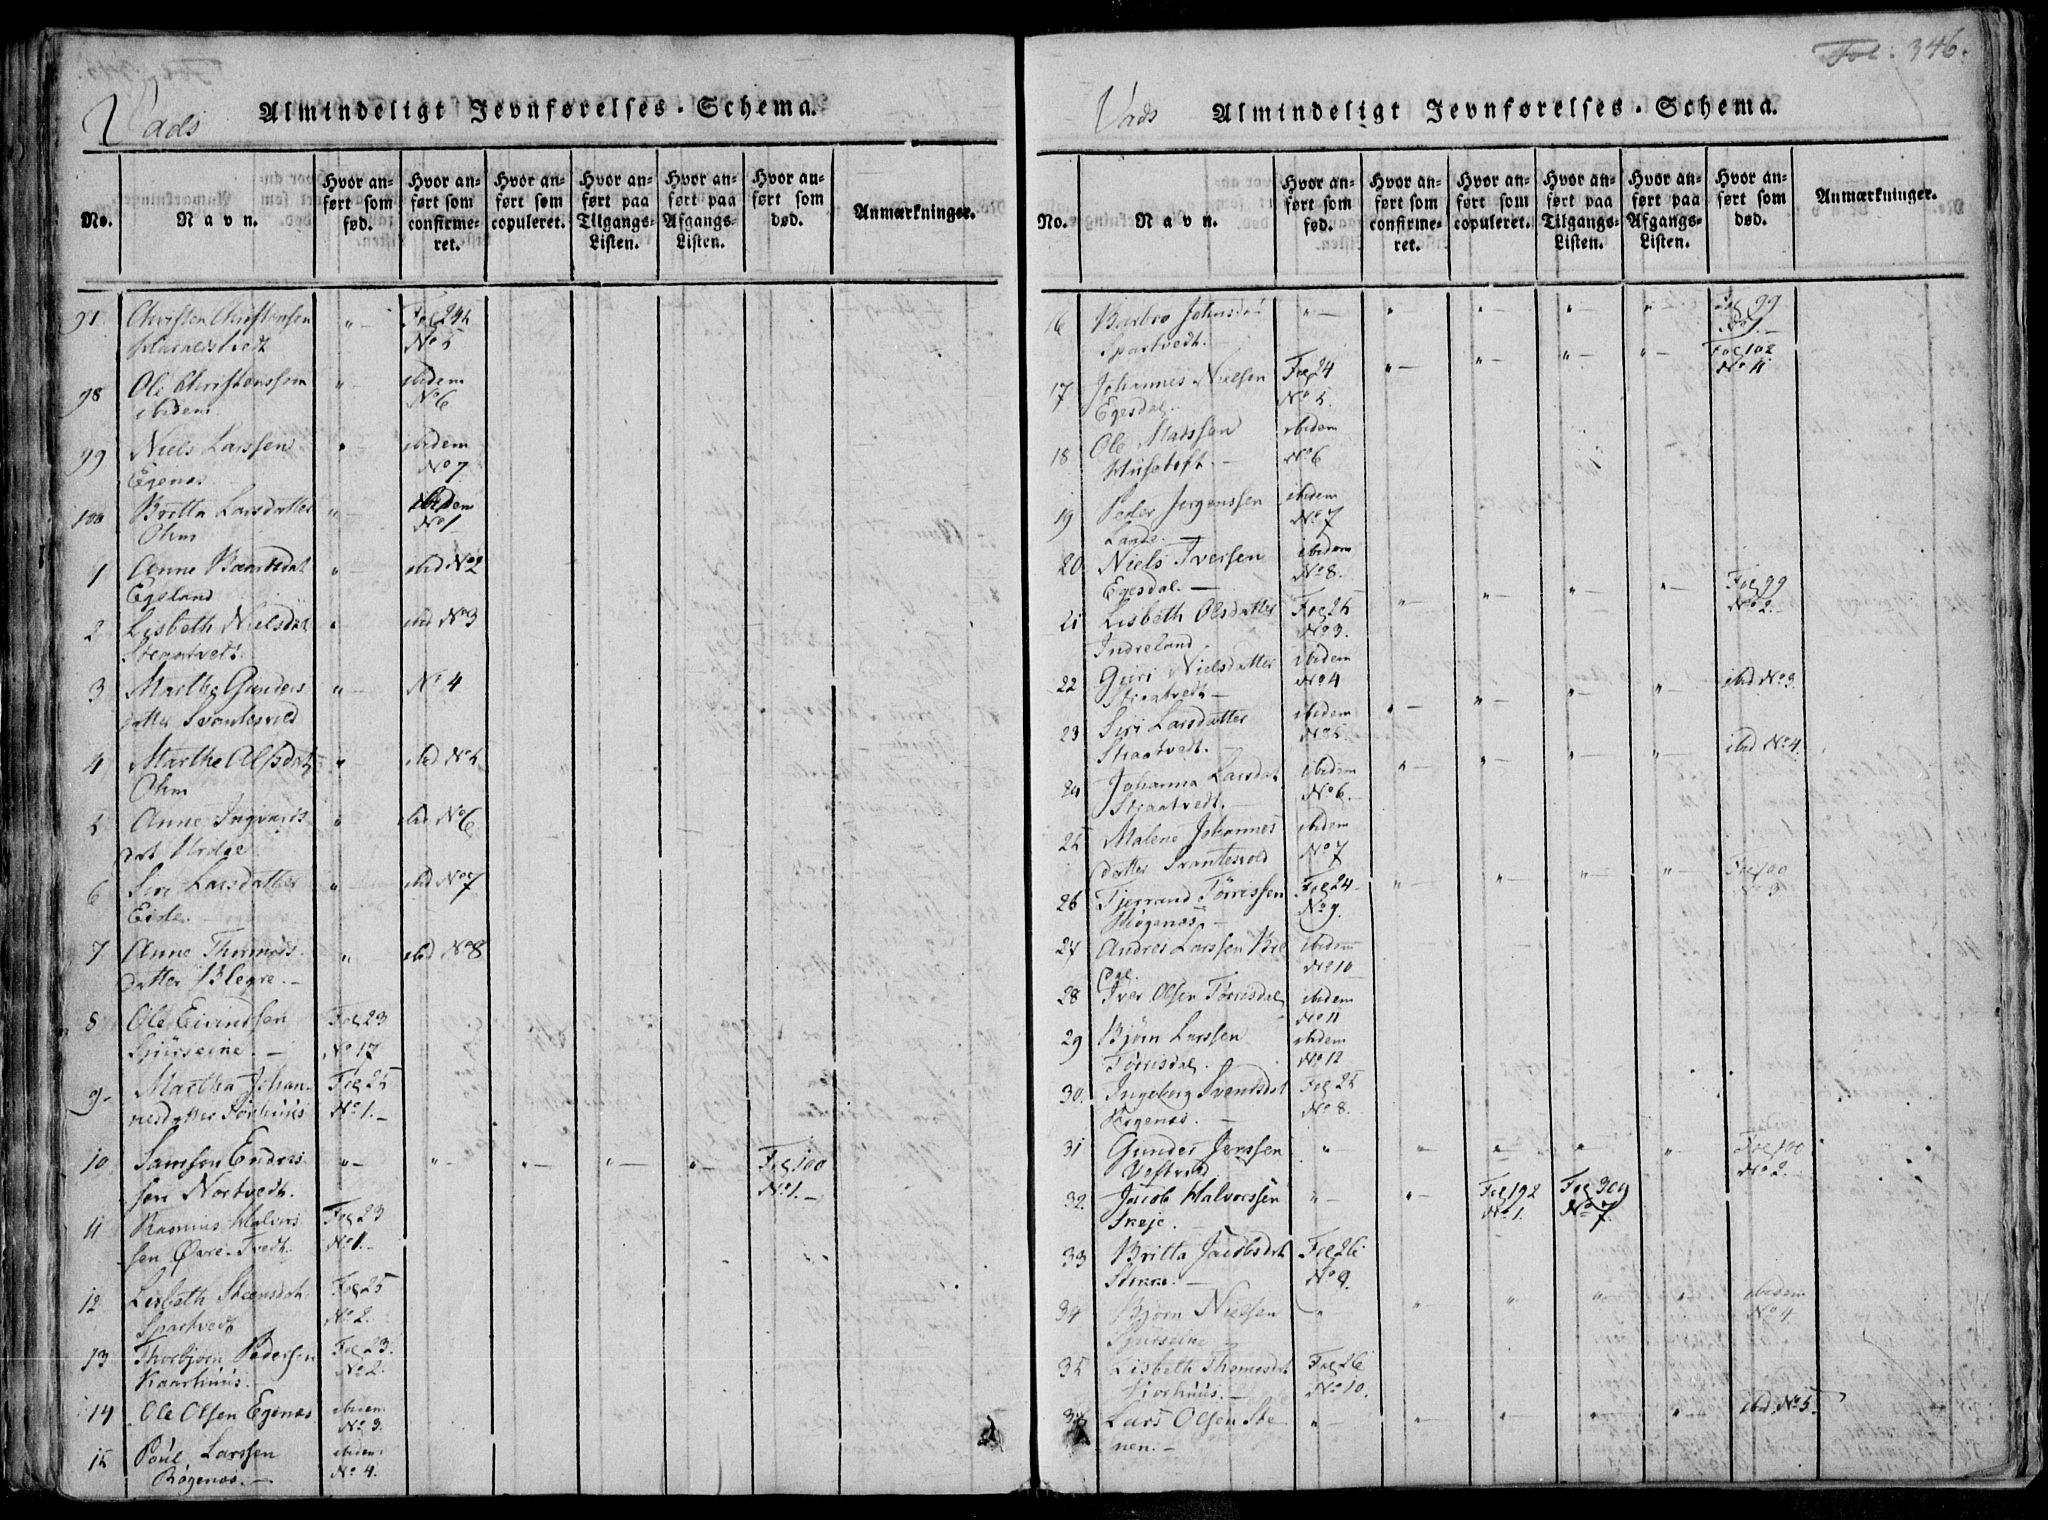 Vads
Almindeligt Jevnførelses-Schema.
No.
Navn.
Hvor anført som fød.
Hvor anført som confirmeret.
Hvor anført som copuleret.
Hvor anført paa Tilgangs-Listen.
Hvor anført paa Afgangs-Listen.
Hvor anført som død.
Anmærkninger.
Christen Christensen " — Fol 24
No 5
98 Ole Christenssen " — ibidem
ibidem No 6
99 Niels Larssen " — ibidem
Egenes No 7
100 Britta Larsdatter " — ibidem
Ohm No 1
1 Anne " — ibid No 2
Egeland
2 Lisbeth Nielsdat " ibid No 3
3 Marthe Gunders " — No 4
datter Svantesvold
4 Marthe Olsdat " — ibid No 5
Ohm
5 Anne Ingvards " ibid No 6
dat
6 Siri Larsdatter " ibid No 7
Eide. —
7 Anne Thomæs " — ibid No 8
datter Blegre. —
8 Ole Eivindsen Fol 23
No 17
9 Martha Johan- Fol 25
nesdatter No 1. —
10 Samson Enders- " — " — " — " — " — Fol 100
sen Nortvedt. No 1. —
11 Rasmus Halvor- Fol 23
sen Øvre-Tvedt. No 1. —
12 Lisbeth Steensdat Fol 25
Spartvedt No 2. —
13 Thorbjørn Pedersen Fol 23.
Kaarhuus. — No 2.
14 Ole Olsen Egenes ibidem
No 3.
15 Poul Larssen ibidem
Røgenes. — No 4.
Fol: 346.
Vads
Almindeligt Jevnførelses-Schema.
No.
Navn.
Hvor anført som fød.
Hvor anført som confirmeret.
Hvor anført som copuleret.
Hvor anført paa Tilgangs-Listen.
Hvor anført paa Afgangs-Listen.
Hvor anført som død.
Anmærkninger.
16 Barbro Johnsda " — " — " — " — " — Fol 99
Spartvedt. — No 1. —
17 Johannes Nielsen Fol 24 " — " — " — " — Fol 102
Egesdal. No 5. No 11
18 Ole Madssen ibidem
Husetoft. — No 6
19 Peder Jørgenssen ibidem
Lande. — No 7
20. Niels Iversen ibidem
Egesdal. — No 8.
21 Lisbeth Olsdatter Fol 25 " — " — " — " — Fol 99
Indreland No 3. No 2. —
22 Guri Nielsdatter ibidem
No 4
23 Siri Larsdatter ibidem " — " — " — " — ibid No 3.
Straatvedt. — No 5.
24 Johanna Larsdat ibidem " — " — " — " — ibid No 4.
Straatvedt. — No 6. —
25 Malene Johannes ibidem
datter Svantesvold No 7
26 Tjerrand Tørrissen Fol 24 " — " — " — " — Fol 100
Røgenes — No 9. No 3
27 Andrei Larssen Bre ibidem
dal. No 10
28 Iver Olsen Tørrisdal ibidem
No 11
29 Bjørn Larssen ibidem
Tørrisdal. No 12
30. Ingeborg Svendsdat Fol 25
Røgenes. — No 8.
31 Gunder Jenssen " — " — " — " — " — Fol 100
No 2. —
32. Jacob Halvorssen " — " — Fol 192 Fol 309
Skeje. — No 1. No 7
33 Britta Jacobsdat Fol 26
No 9.
34 Bjørn Nielsen " — " — " — " — " — ibidem
No 4
35 Lisbeth Thomesdat Fol 26
No 10.
36 Lars Olsen Ste- " — " — " — " — " — ibid No 5.
nen. —